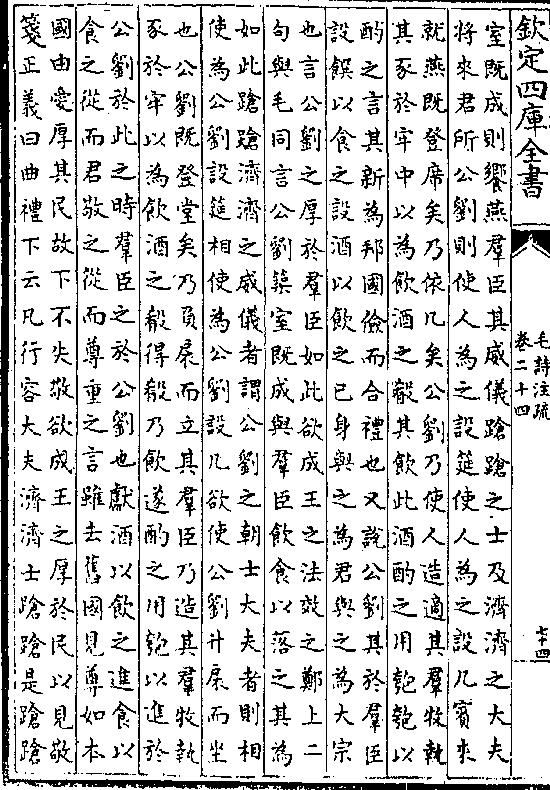 欽定四庫全書
毛詩注疏
卷二十四
十四
室既成則饗燕羣臣其威儀蹌蹌之士及濟濟之大夫
將來君所公劉則使人為之設筵使人為之設几賓來
就燕既登席矣乃依几矣公劉乃使人造適其羣牧執
其豕於牢中以為飲酒之殽其飲此酒酌之用匏匏以
酌之言其新為邦國儉而合禮也又說公劉其於羣臣
設饌以食之設酒以飲之已身與之為君與之為大宗
也言公劉之厚於羣臣如此欲成王之法效之鄭上二
句與毛同言公劉築室既成與羣臣飲食以落之其為
如此蹌蹌濟濟之威儀者謂公劉之朝士大夫者則相
使為公劉設筵相使為公劉設几欲使公劉升扆而坐
也公劉既登堂矣乃負扆而立其羣臣乃造其羣牧執
豕於牢以為飲酒之殽得殽乃飲遂酌之用匏以進於
公劉於此之時羣臣之於公劉也獻酒以飲之進食以
食之從而君敬之從而尊重之言雖去舊國見尊如本
國由愛厚其民故下不失敬欲成王之厚於民以見敬
箋正義曰曲禮下云凡行容大夫濟濟士蹌蹌是蹌蹌